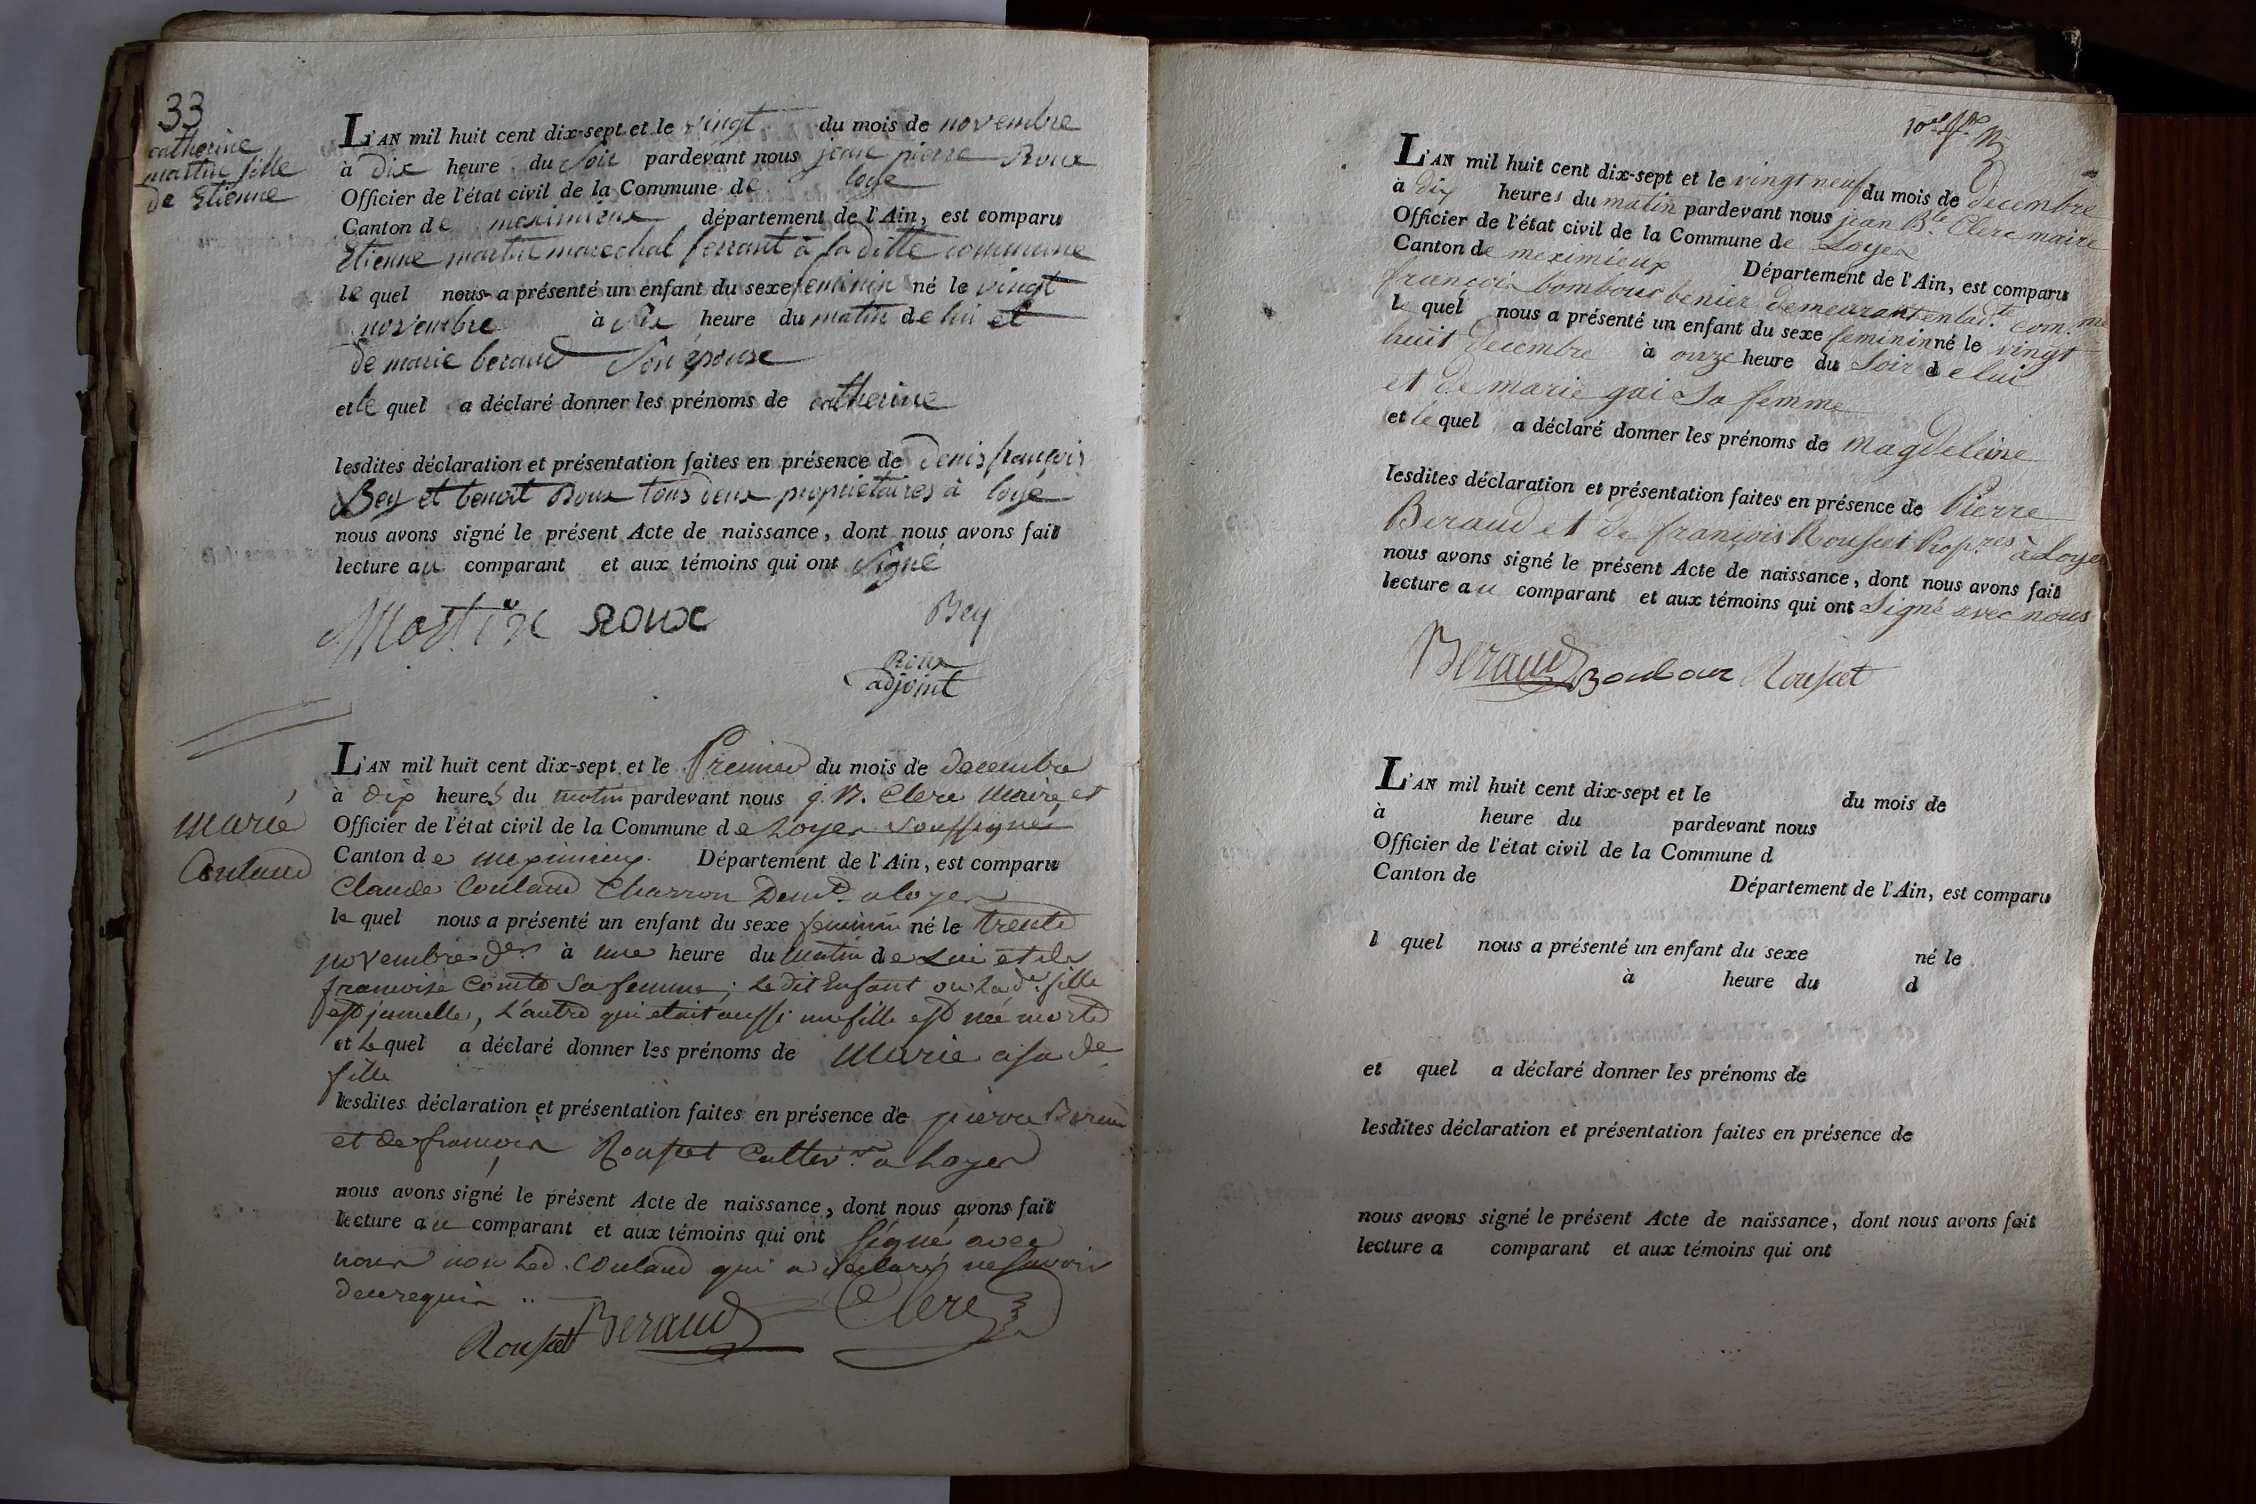 33
catherine
martin fille
de Etienne
L'AN mil huit cent dix-sept et le vingt du mois de novembre
à dix heure du soir pardevant nous jean pierre Roux
Officier de l'état civil de la Commune de loye
Canton de meximieux département de l'Ain, est comparu
Etienne martin marechal ferrant à la ditte commune
le quel nous a présenté un enfant du sexe feminin né le vingt
novembre à dix heure du matin de lui et
de marie beraud son épouse
et le quel a déclaré donner les prénoms de catherine
lesdites déclaration et présentation faites en présence de Denis françois
Bey et benoit Roux tous deux propriétaires à loye
nous avons signé le présent Acte de naissance, dont nous avons fait
lecture au comparant et aux témoins qui ont signé
Martin Roux Bey
Roux
adjoint
Marie
Coulaud
L'AN mil huit cent dix-sept et le Premier du mois de decembre
à dix heures du matin pardevant nous j. B. Clerc Maire et
Officier de l'état civil de la Commune de Loyes soussigné
Canton de Meximieux Département de l'Ain, est comparu
Claude Coulaud Charron Demt. a loyes
le quel nous a présenté un enfant du sexe feminin né le trente
novembre der. à une heure du matin de Lui et de
francoise Comte Sa femme; Le dit Enfant ou La de. fille
est jumelle, L'autre qui etait aussi une fille est née morte
et Le quel a déclaré donner les prénoms de Marie a sa de.
fille
lesdites déclaration et présentation faites en présence de pierre Beraud
et de francois Rousset Cultivrs. a Loyes
nous avons signé le présent Acte de naissance, dont nous avons fait
lecture au comparant et aux témoins qui ont signé avec
nous non Led. Coulaud qui a declaré ne savoir
de ce requis
Rousset Beraud Clerc
L'AN mil huit cent dix-sept et le vingt neuf du mois de decembre
à dix heures du matin pardevant nous jean Bte. Clerc maire
Officier de l'état civil de la Commune de Loyes
Canton de meximieux Département de l'Ain, est comparu
françois bombour benier demeurant en lad.te com.me
le quel nous a présenté un enfant du sexe feminin né le vingt
huit decembre à onze heure du soir de lui
et de marie gai sa femme
et le quel a déclaré donner les prénoms de magdeleine
lesdites déclaration et présentation faites en présence de Pierre
Beraud et de françois Rousset Prop.res à Loyes
nous avons signé le présent Acte de naissance, dont nous avons fait
lecture au comparant et aux témoins qui ont signé avec nous
Beraud Boubour Rousset
L'AN mil huit cent dix-sept et le du mois de
à heure du pardevant nous
Officier de l'état civil de la Commune d
Canton de Département de l'Ain, est comparu
l quel nous a présenté un enfant du sexe né le
à heure du d
et quel a déclaré donner les prénoms de
lesdites déclaration et présentation faites en présence de
nous avons signé le présent Acte de naissance, dont nous avons fait
lecture a comparant et aux témoins qui ont